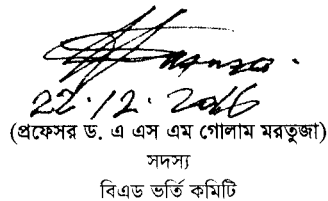 22.12.2016
(প্রফেসর ড. এ এস এম গোলাম মরতুজা)
সদস্য
বিএড ভর্তি কমিটি